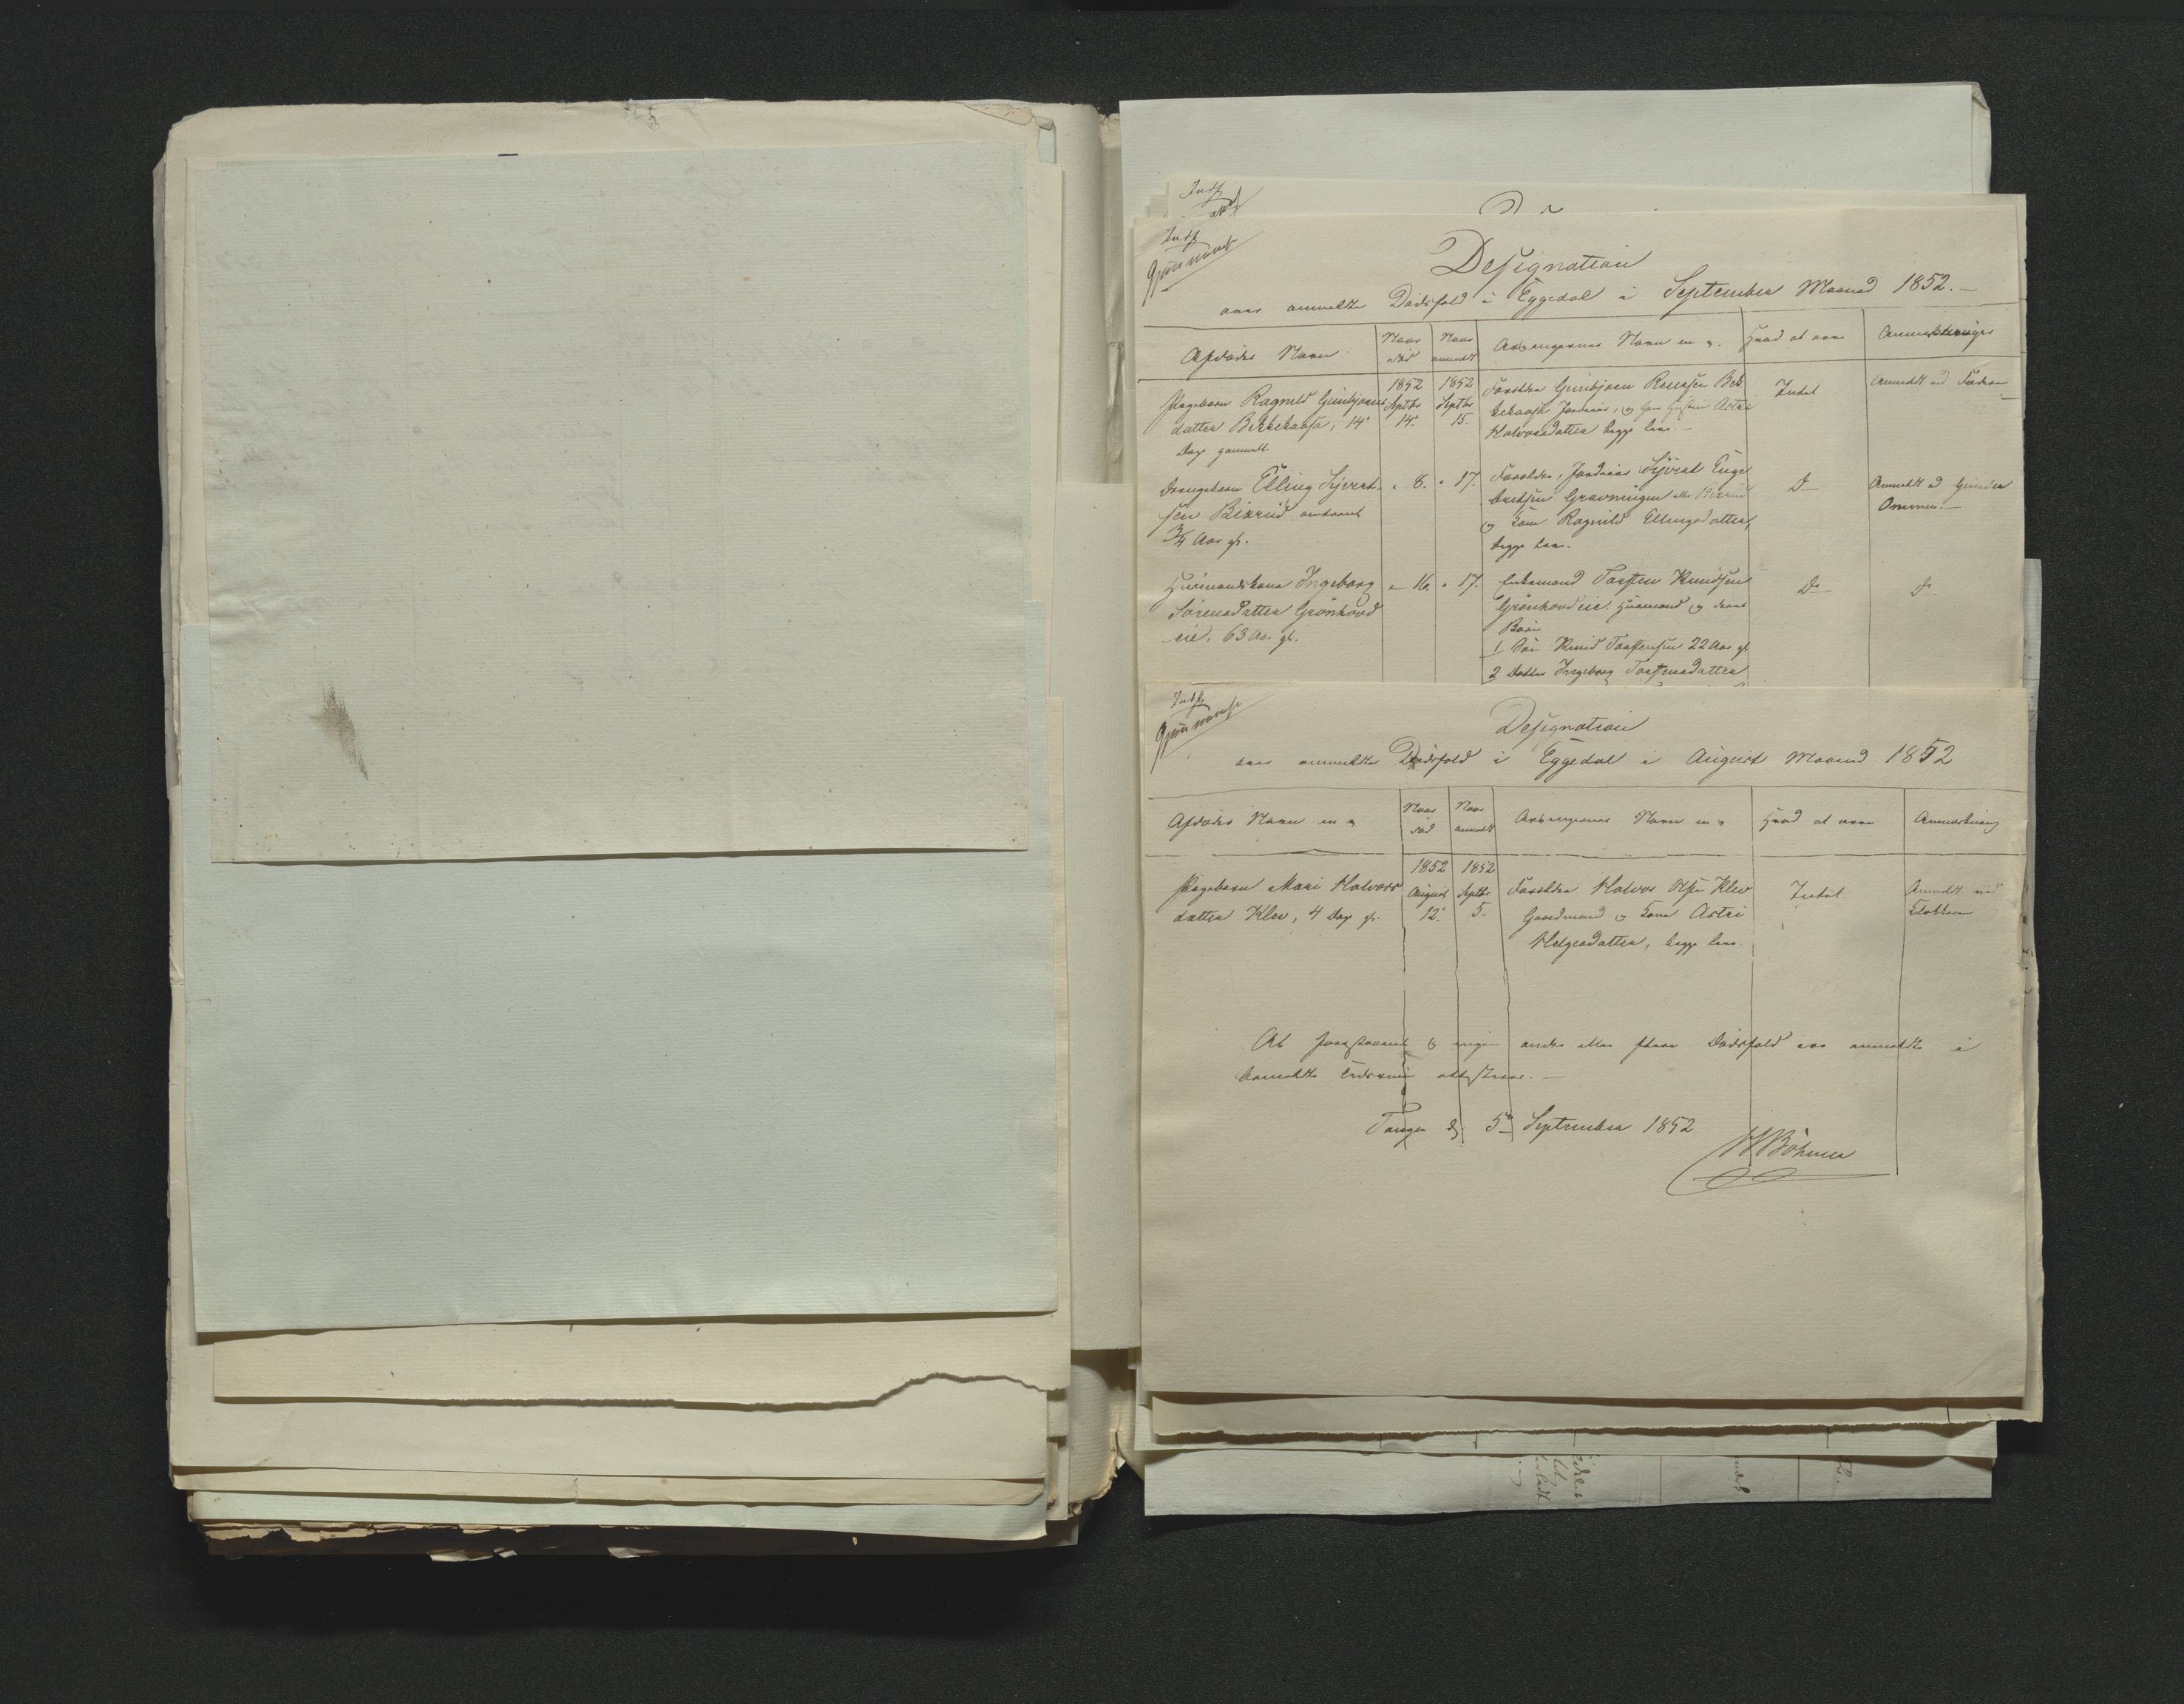 Indf
Indf
Gjennemset
Designation
over anmeldte Dødsfald i Eggedal i September Maaned 1852.
Afdødes Navn
Naar død
Naar anmeldt
Arvingernes Navn m. v.
Hvad at arve
Anmærkninger
Pigebarn Ragnild Gunbjørns
datter Bekkeaasa, 14
Dage gammel.
1852
Septbr
14.
1852
Septbr
15.
Forældre Gunbjørn
og hans Hustru Astri
Halvorsdatter begge leve.
Intet
Anmeldt ved Faderen
Drengebarn Elling Syvert-
sen Bixrud omtrent
3/4 Aar gl.
" 8.
" 17.
Forældre, Syvert Enge
bretsen Gravningen eller Bixrud
og Kone Ragnild Ellingsdatter,
begge leve.
Do
Anmeldt ved Gunder
Husmandskone Ingeborg
Sørensdatter Grønhovd
eie, 63 Aar gl.
" 16.
" 17.
Enkemand Torsten Knudsen
Grønhovdeie. Husmand og deres
Børn
1 Søn Knud Torstensen 22 Aar gl
2 Datter Ingeborg Torstensdatter
Do
Do
Indf.
Gjennemset
Designation
over anmeldte Dødsfald i Eggedal i August Maaned 1852
Afdødes Navn m v
Naar død
Naar anmeldt
Arvingernes Navn m v
Hvad at arve
Anmærkning
Pigebarn Mari Halvors
datter Klev, 4 Dage gl.
1852
August
12.
1852
Septbr
5.
Forældre Halvor Olsen Klev
Gaardmand og Kone Astri
Helgesdatter, begge leve.
Intet.
Anmeldt ved
Klokkeren
At foranstaaende og ingen andre eller flere Dødsfald ere anmeldte i
bemeldte Tidsrum attesteres.
Tangen d. 5te September 1852
Bøhmer